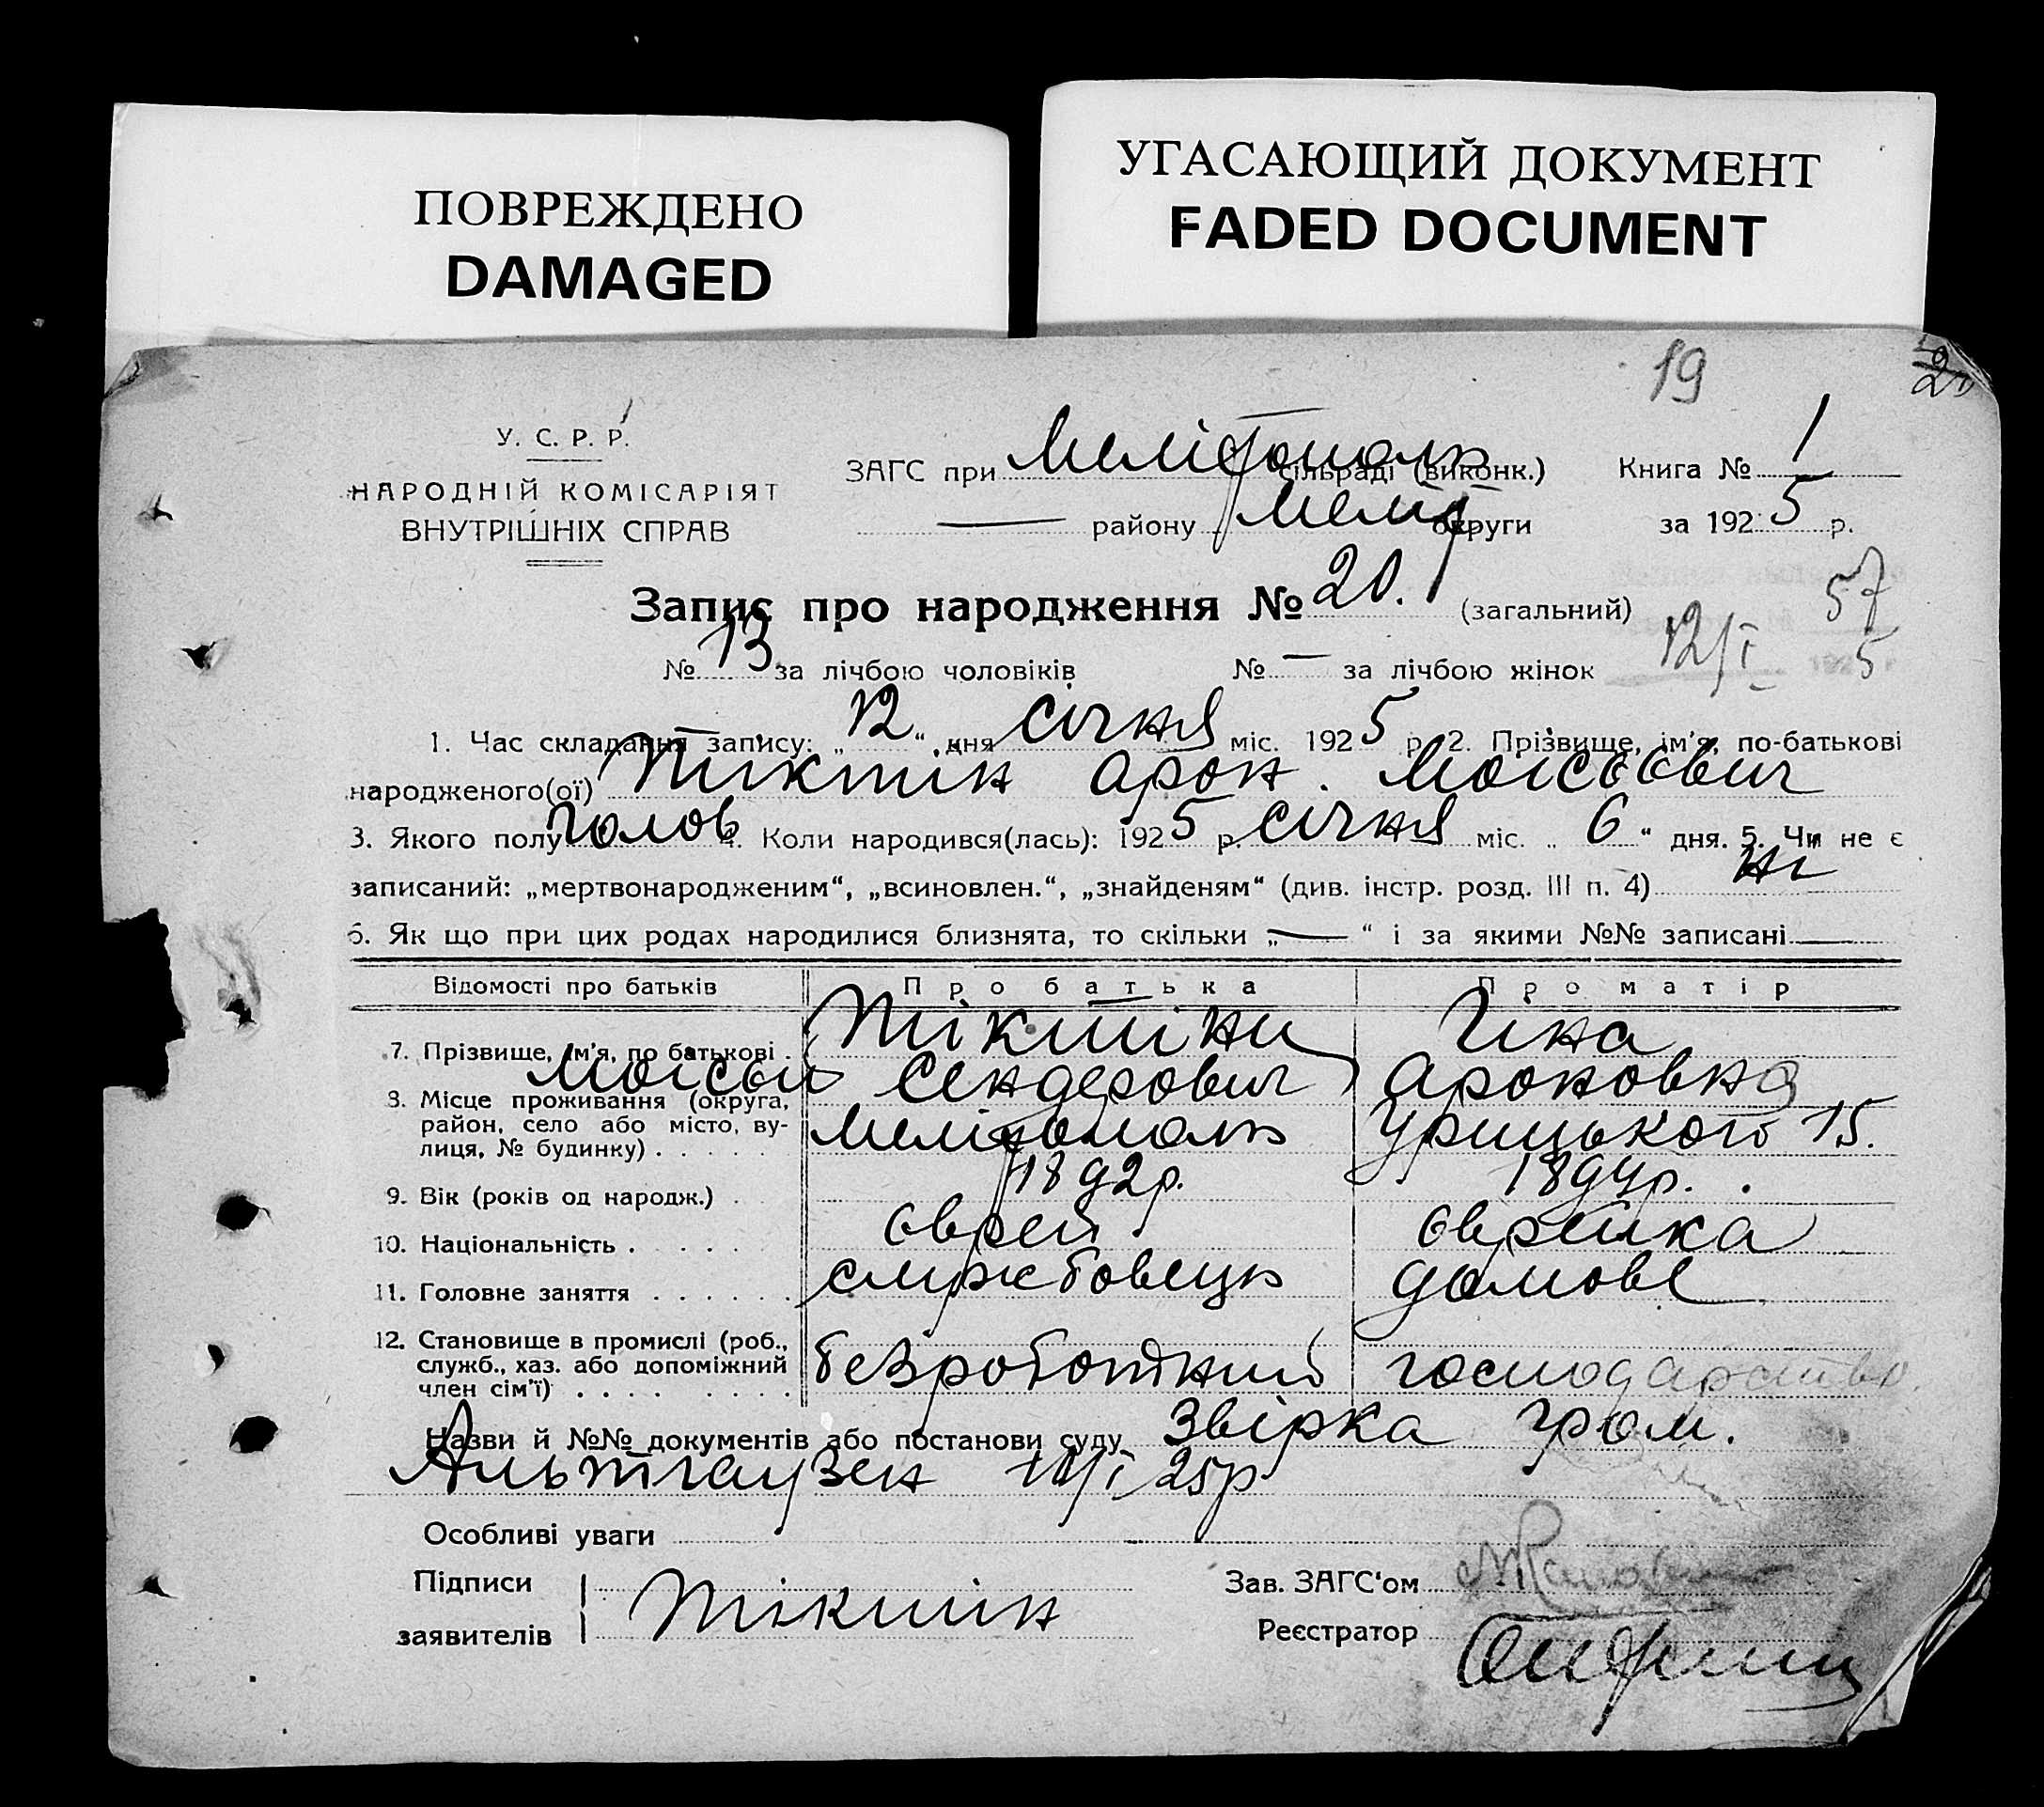 ПОВРЕЖДЕНО
DAMAGED
УГАСАЮЩИЙ ДОКУМЕНТ
FADED DOCUMENT
19
У. С. Р. Р.
НАРОДНІЙ КОМІСАРІЯТ
ВНУТРІШНІХ СПРАВ
ЗАГС при Мелітополь сільраді (виконк.) Книга № 1
— району Меліт округи за 1925 р.
Запис про народження № 20. (загальний)
57
№ 13 за лічбою чоловіків № — за лічбою жінок 12/I 5
1. Час складання запису: „12“ дня січня міс. 1925 р. 2. Прізвище, ім’я, по-батькові
народженого(ої) Тіктін Арон Моісєєвич
3. Якого полу чолов 4. Коли народився(лась): 1925 р. січня міс. „6“ дня. 5. Чи не є
записаний: „мертвонародженим“, „всиновлен.“, „знайденям“ (див. інстр. розд. III п. 4) ні
6. Як що при цих родах народилися близнята, то скільки „—“ і за якими №№ записані —
Відомості про батьків Про батька Про матір
7. Прізвище, ім’я, по батькові . Тіктіни
Моісей Сендерович Ароновна
8. Місце проживання (округа,
район, село або місто, вулиця, № будинку) . . . . . Мелітополь Урицького 15.
9. Вік (років од народж.) . 1892р. 1894р.
10. Національність . . . . . єврей єврейка
11. Головне заняття . . . . . . службовець домове
12. Становище в промислі (роб.,
служб., хаз. або допоміжний
член сім’ї) . . . . . . . . безроботний господарство
Назви й №№ документів або постанови суду Звірка гром.
Альтгаузен 12/I 25р
Особливі уваги
Підписи
заявителів Тіктін
Зав. ЗАГС‘ом
Реєстратор